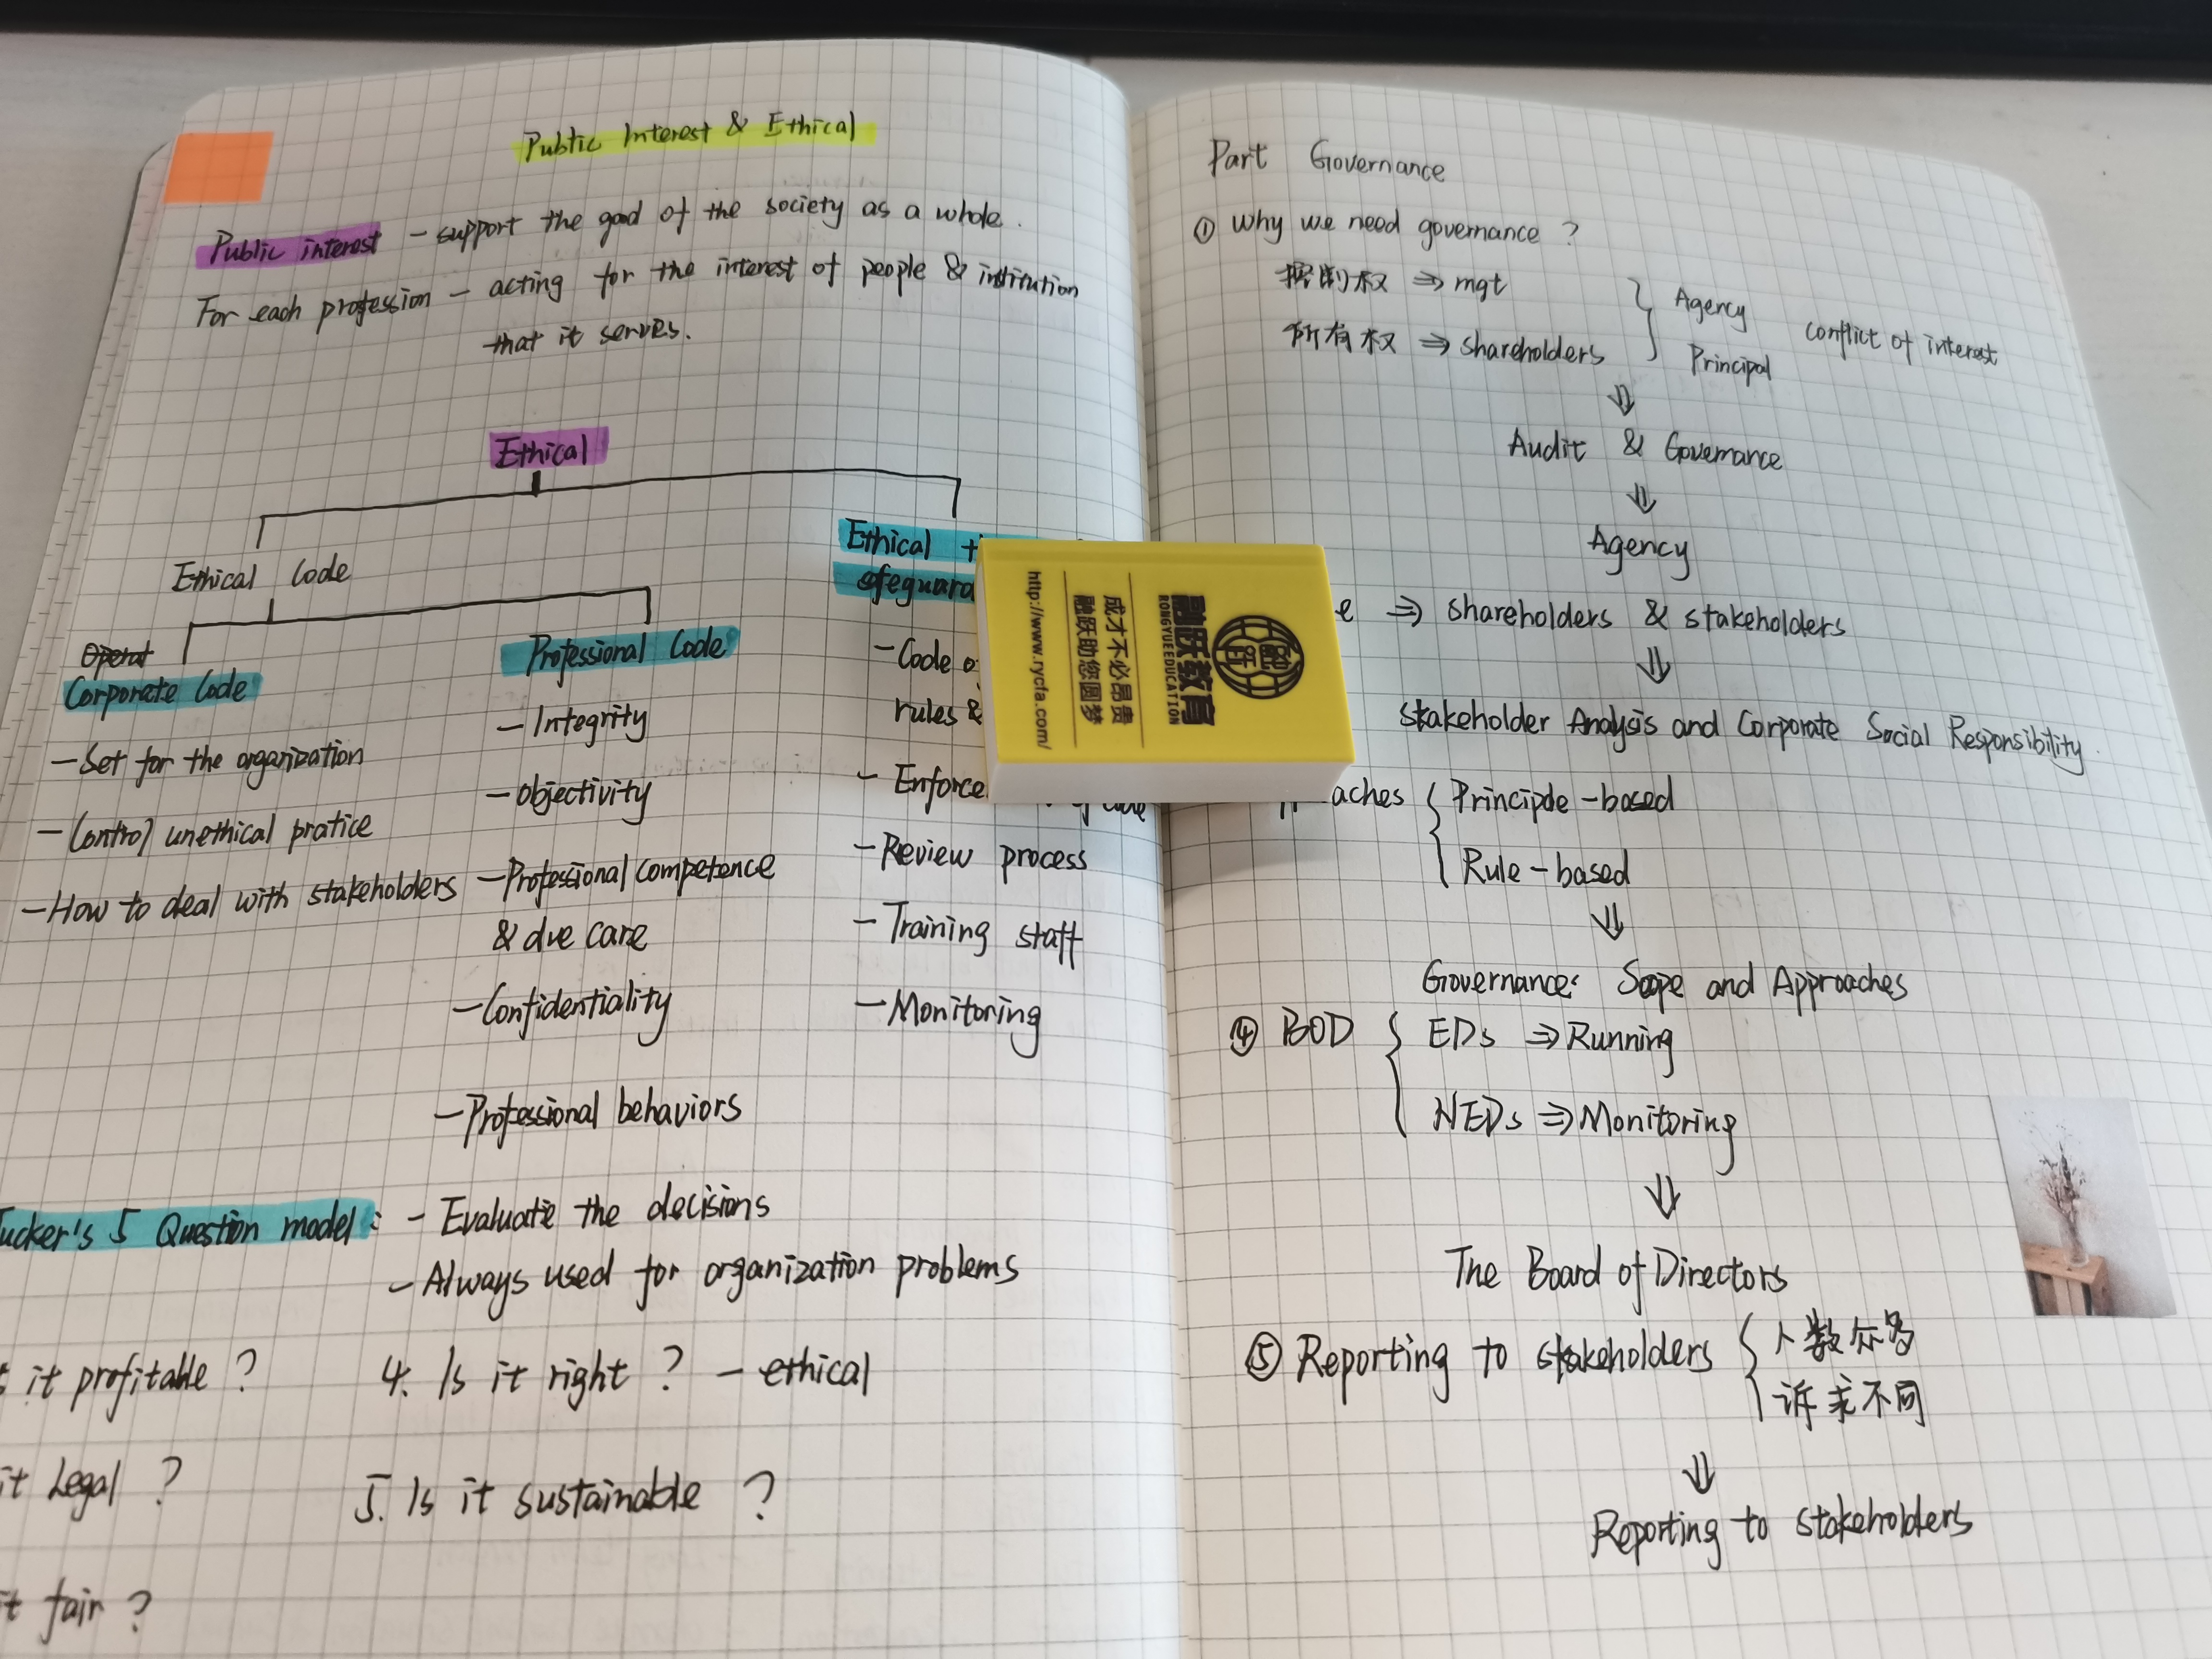 Public Interest & Ethical
Public interest – support the good of the society as a whole.
For each profession – acting for the interest of people & institution
that it serves.
Ethical
Ethical Code
Ethical
safeguard
Corporate Code
– Set for the organization
– Control unethical pratice
– How to deal with stakeholders
Professional Code
– Integrity
– Objectivity
– Professional competence
& due care
– Confidentiality
– Professional behaviors
– Code
rules &
– Enforce
– Review process
– Training staff
– Monitoring
ucker's 5 Question model:
– Evaluate the decisions
– Always used for organization problems
it profitable ?
it Legal ?
it fair ?
4. Is it right ? – ethical
5. Is it sustainable ?
融跃教育
RONGYUEEDUCATION
成才不必昂贵
融跃助您圆梦
http://www.rycfa.com/
Part Governance
① Why we need governance ?
控制权 ⇒ mgt
所有权 ⇒ shareholders
Agency
Principal
conflict of interest
⇓
Audit & Governance
⇓
Agency
e ⇒ shareholders & stakeholders
⇓
Stakeholder Analysis and Corporate Social Responsibility.
aches { Principle-based
Rule-based
⇓
Governance: Scope and Approaches
④ BOD { EDs ⇒ Running
NEDs ⇒ Monitoring
⇓
The Board of Directors
⑤ Reporting to stakeholders { 人数众多
诉求不同
⇓
Reporting to stakeholders